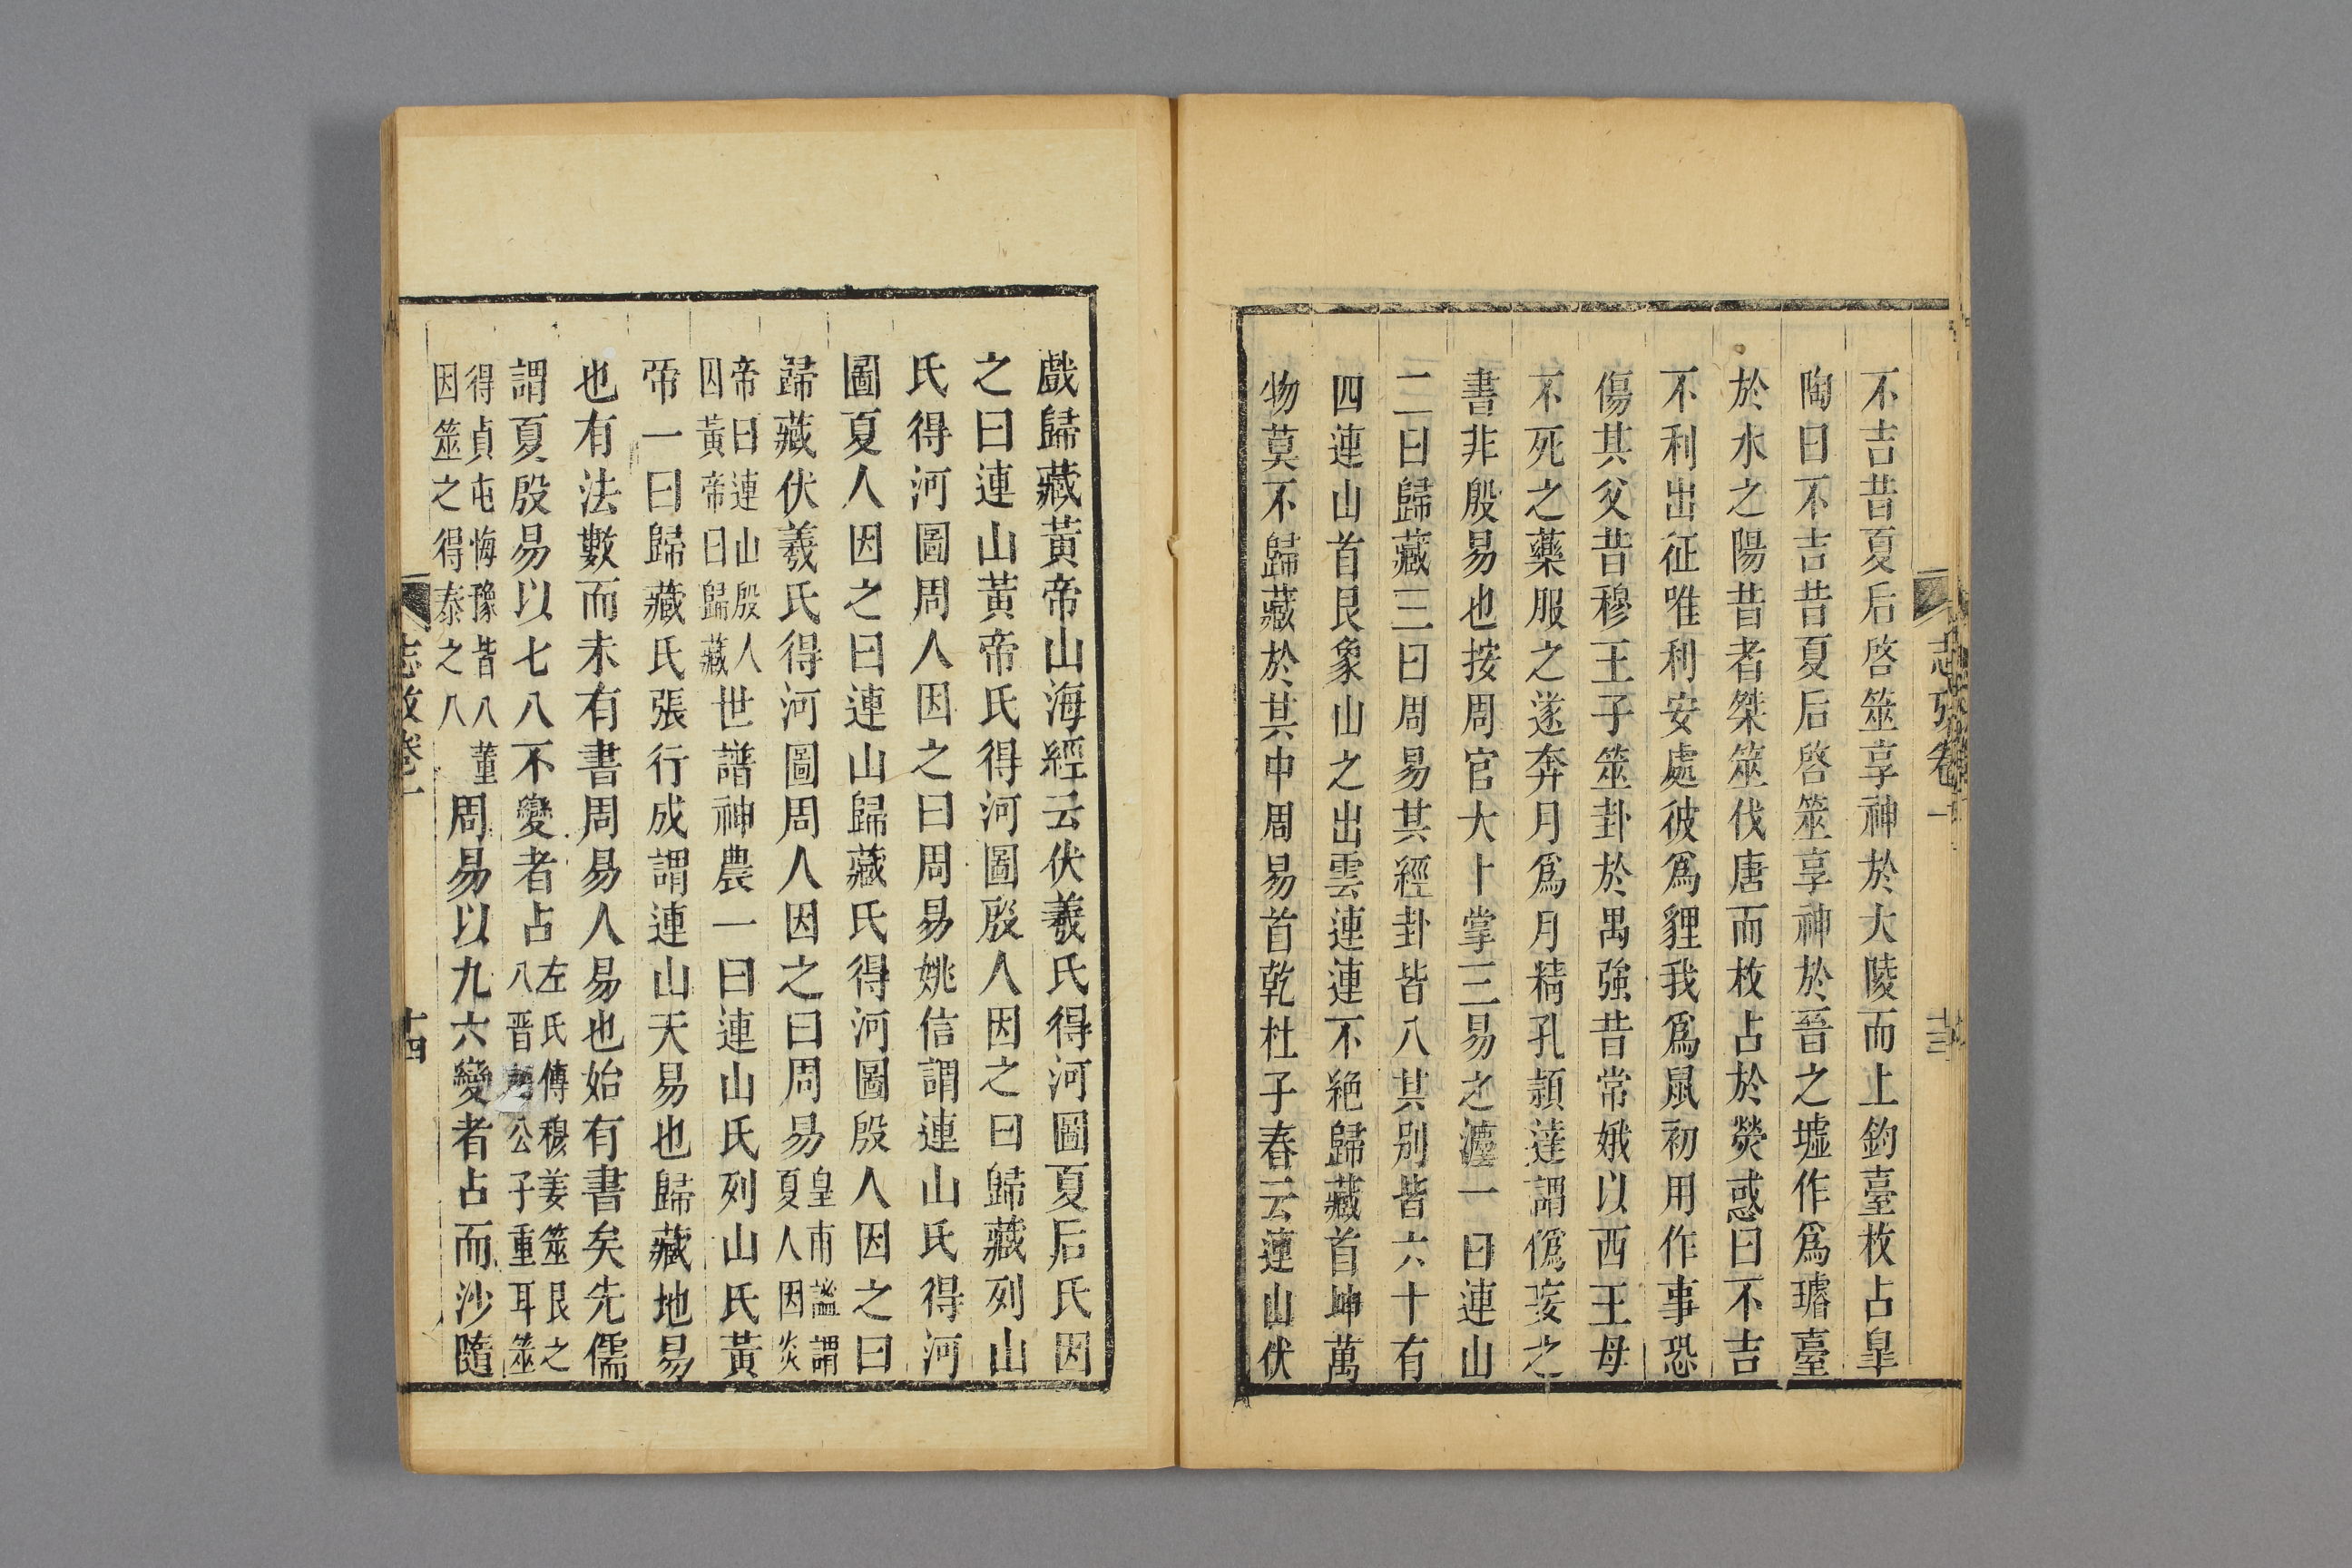 志攷卷一
十三
不吉昔夏后啓筮享神於大陵而上鈞臺枚占皐
陶曰不吉昔夏后啓筮享神於晉之墟作爲璿臺
於水之陽昔者桀筮伐唐而枚占於熒惑曰不吉
不利出征唯利安處彼爲貍我爲鼠初用作事恐
傷其父昔穆王子筮卦於禺強昔常娥以西王母
不死之藥服之遂奔月爲月精孔頴達謂僞妄之
書非殷易也按周官大卜掌三易之灋一曰連山
二曰歸藏三曰周易其經卦皆八其别皆六十有
四連山首艮象山之出雲連連不絶歸藏首坤萬
物莫不歸藏於其中周易首乾杜子春云連山伏
戲歸藏黃帝山海經云伏羲氏得河圖夏后氏因
之曰連山黃帝氏得河圖殷人因之曰歸藏列山
氏得河圖周人因之曰周易姚信謂連山氏得河
圖夏人因之曰連山歸藏氏得河圖殷人因之曰
歸藏伏羲氏得河圖周人因之曰周易皇甫謐謂夏人因炎
帝曰連山殷人因黃帝曰歸藏世譜神農一曰連山氏列山氏黃
帝一曰歸藏氏張行成謂連山天易也歸藏地易
也有法數而未有書周易人易也始有書矣先儒
謂夏殷易以七八不變者占左氏傳穆姜筮艮之八晉公子重耳筮
得貞屯悔豫皆八董因筮之得泰之八周易以九六變者占而沙隨
志攷卷一
十四